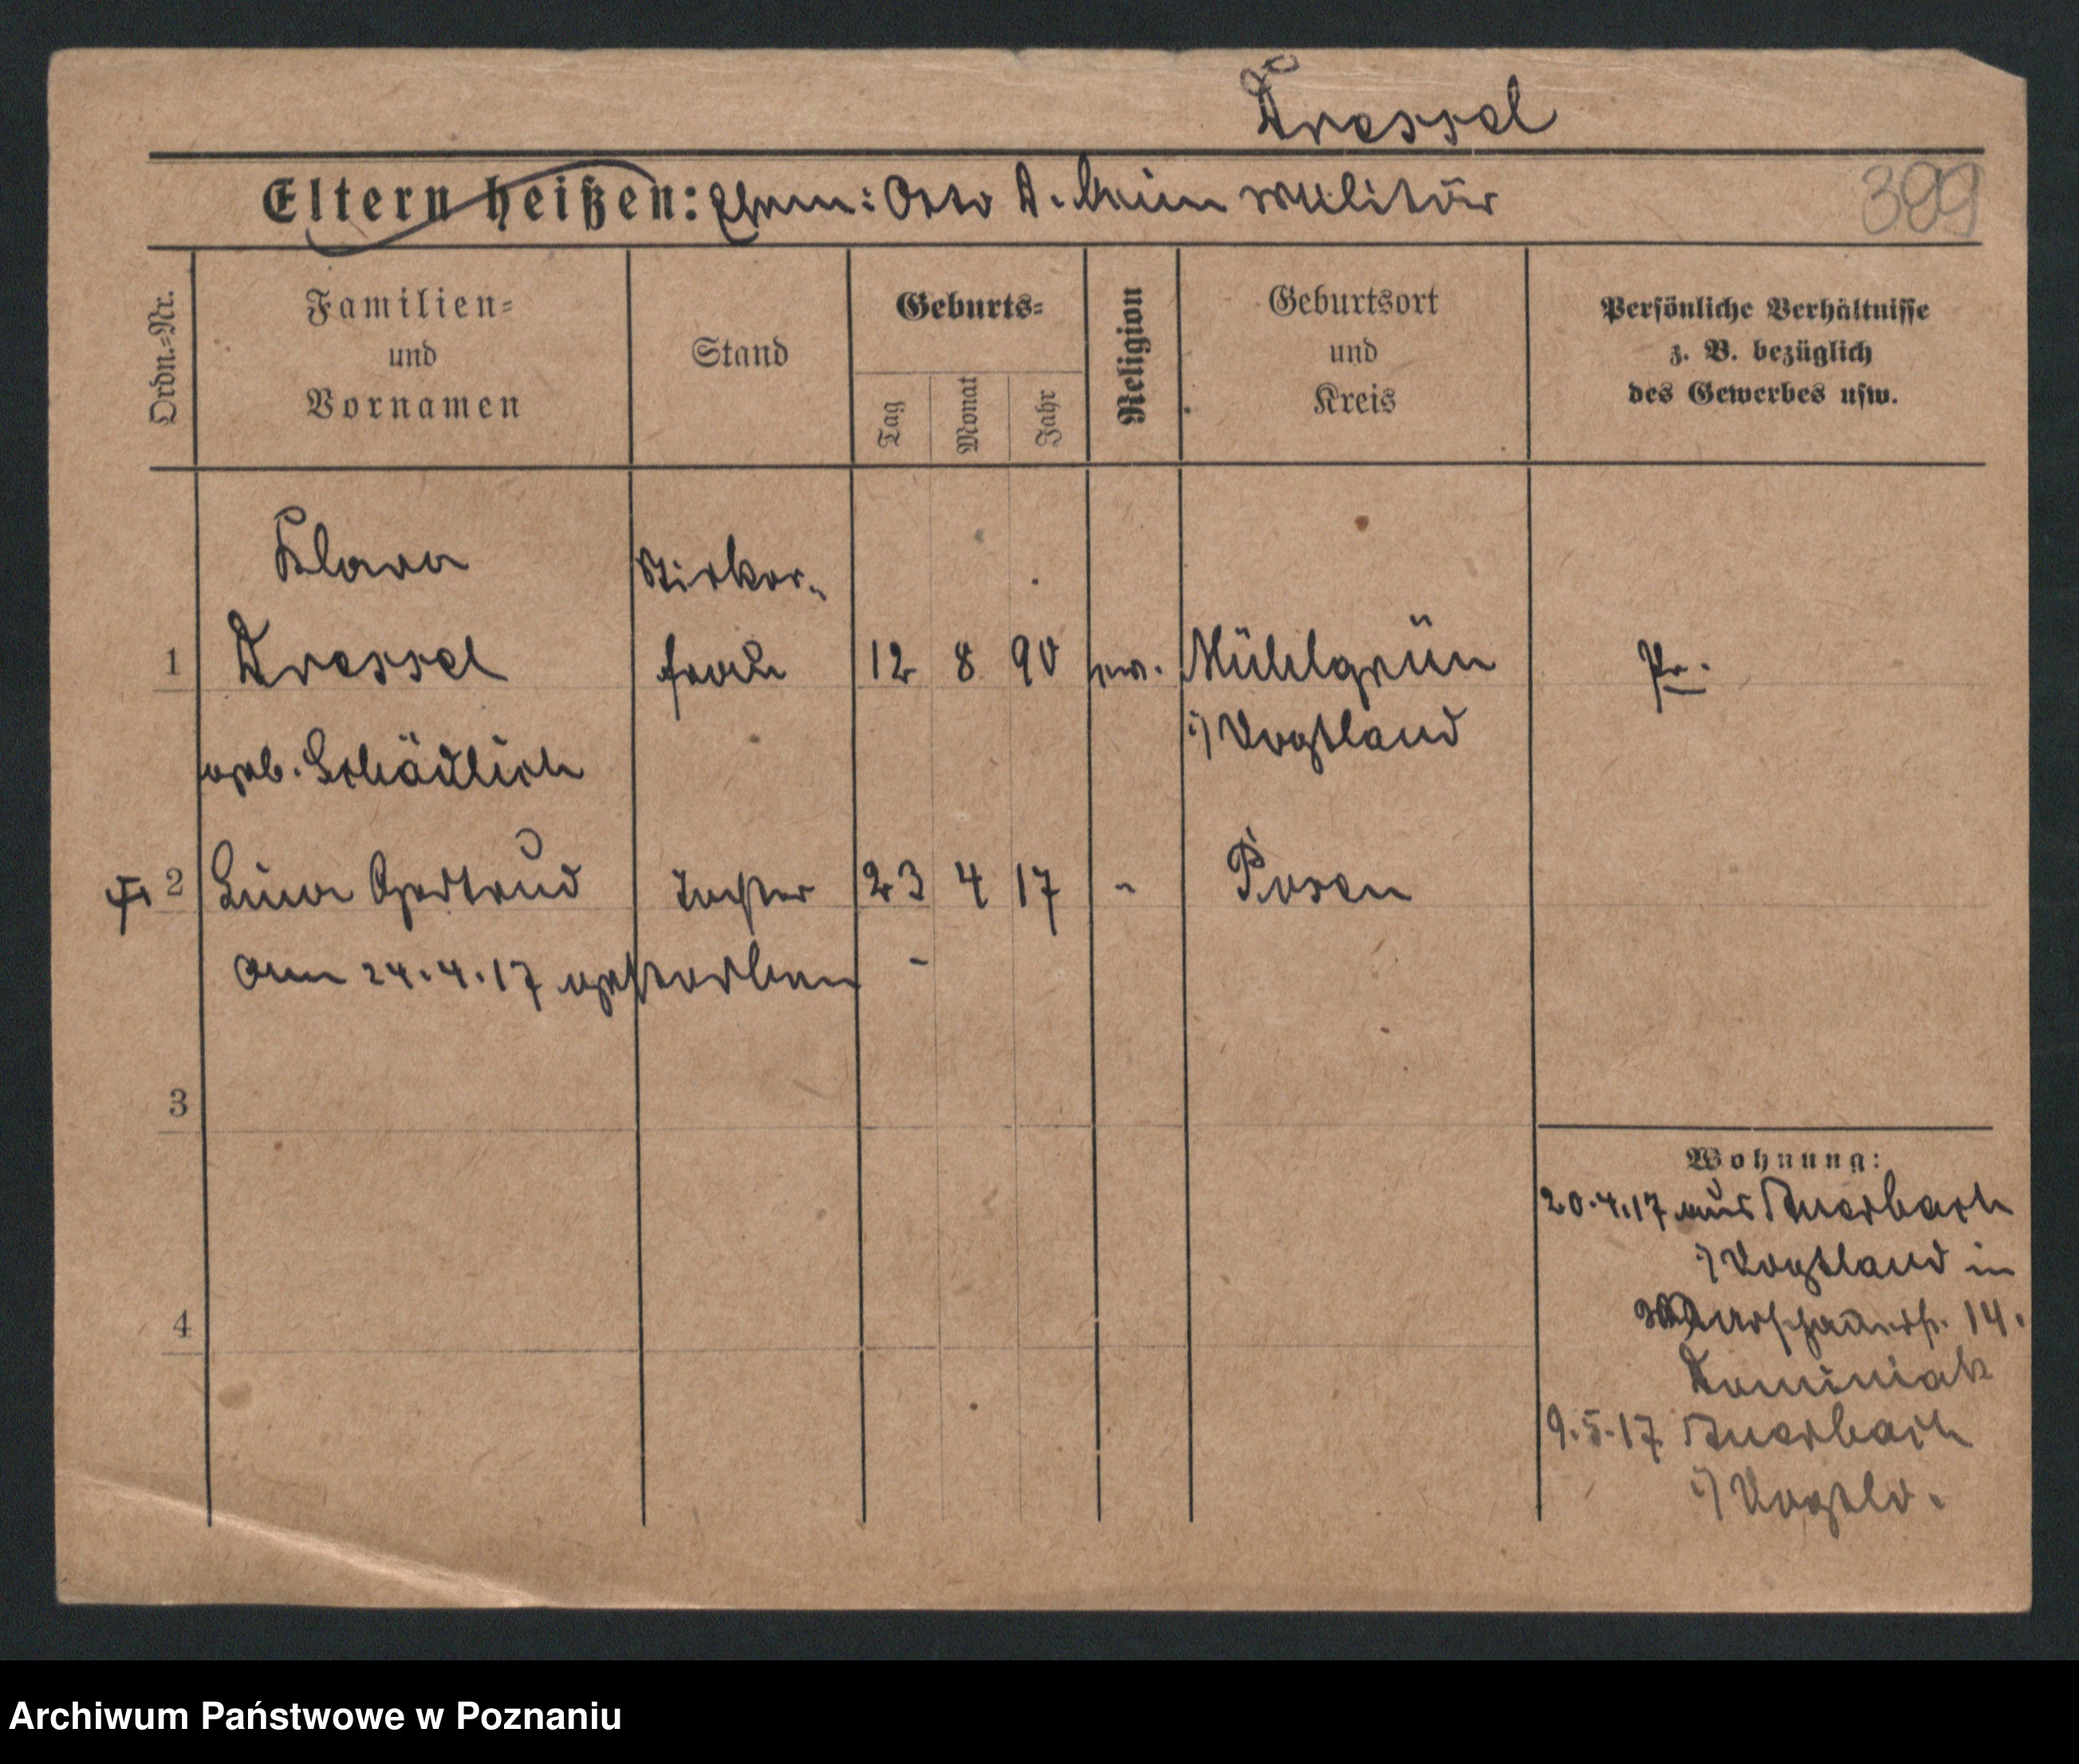 Dressel
Eltern heißen: Ehem: Otto D. beim Militär
399
Ordn.-Nr.
Familien-
und
Vornamen
Stand
Geburts-
Tag
Monat
Jahr
Religion
Geburtsort
und
Kreis
Persönliche Verhältnisse
z. B. bezüglich
des Gewerbes usw.
Klara
1 Dressel
geb. Schädlich
Stickers-
frau
12 8 90 ev. Mühlgrün
i/ Vogtland
Pr.
2 Lina Gertrud Tochter 23 4 17 - Posen
am 24.4.17 gestorben -
3
4
Wohnung:
20.4.17 aus Auerbach
i/ Vogtland in
Warschauerstr. 14.
Dominiak
9.5.17 Auerbach
i/ Vogtld.
Archiwum Państwowe w Poznaniu